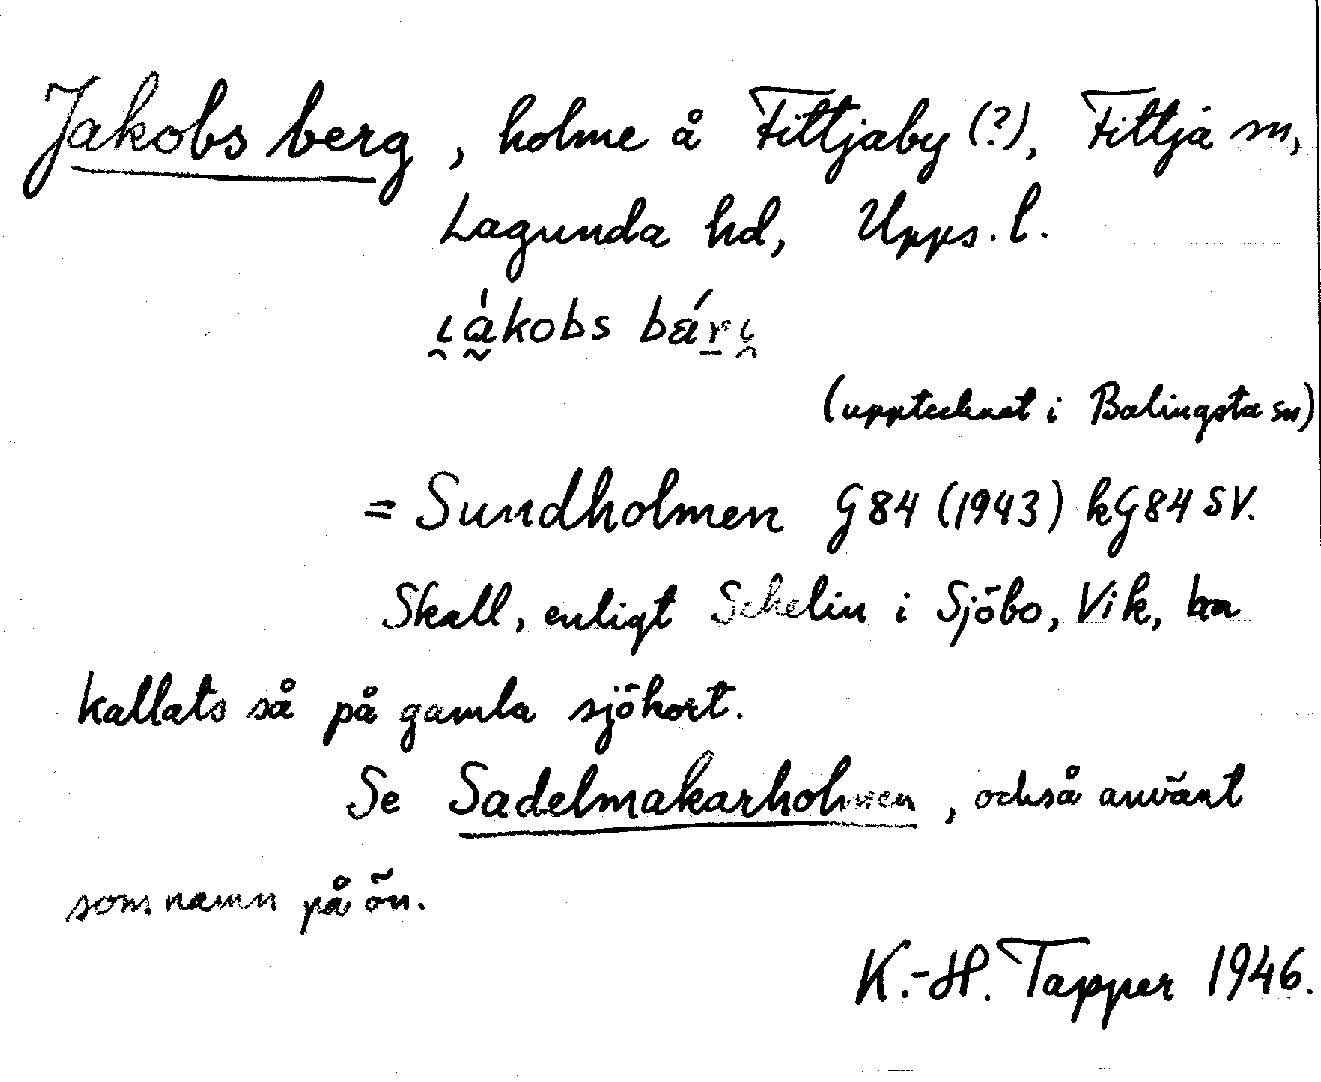 Jakobs berg, holme å Fittjaby (?), Fittja sn,
Lagunda hd, Upps. l.
ı̯ȧ́kobs bárı̯
(upptecknat i Balingsta sn)
= Sundholmen G 84 (1943) kG 84 SV.
Skall, enligt Schelin i Sjöbo, Vik, ha
kallats så på gamla sjökort.
Se Sadelmakarholmen, också använt
som namn på ön.
K.-H. Tapper 1946.